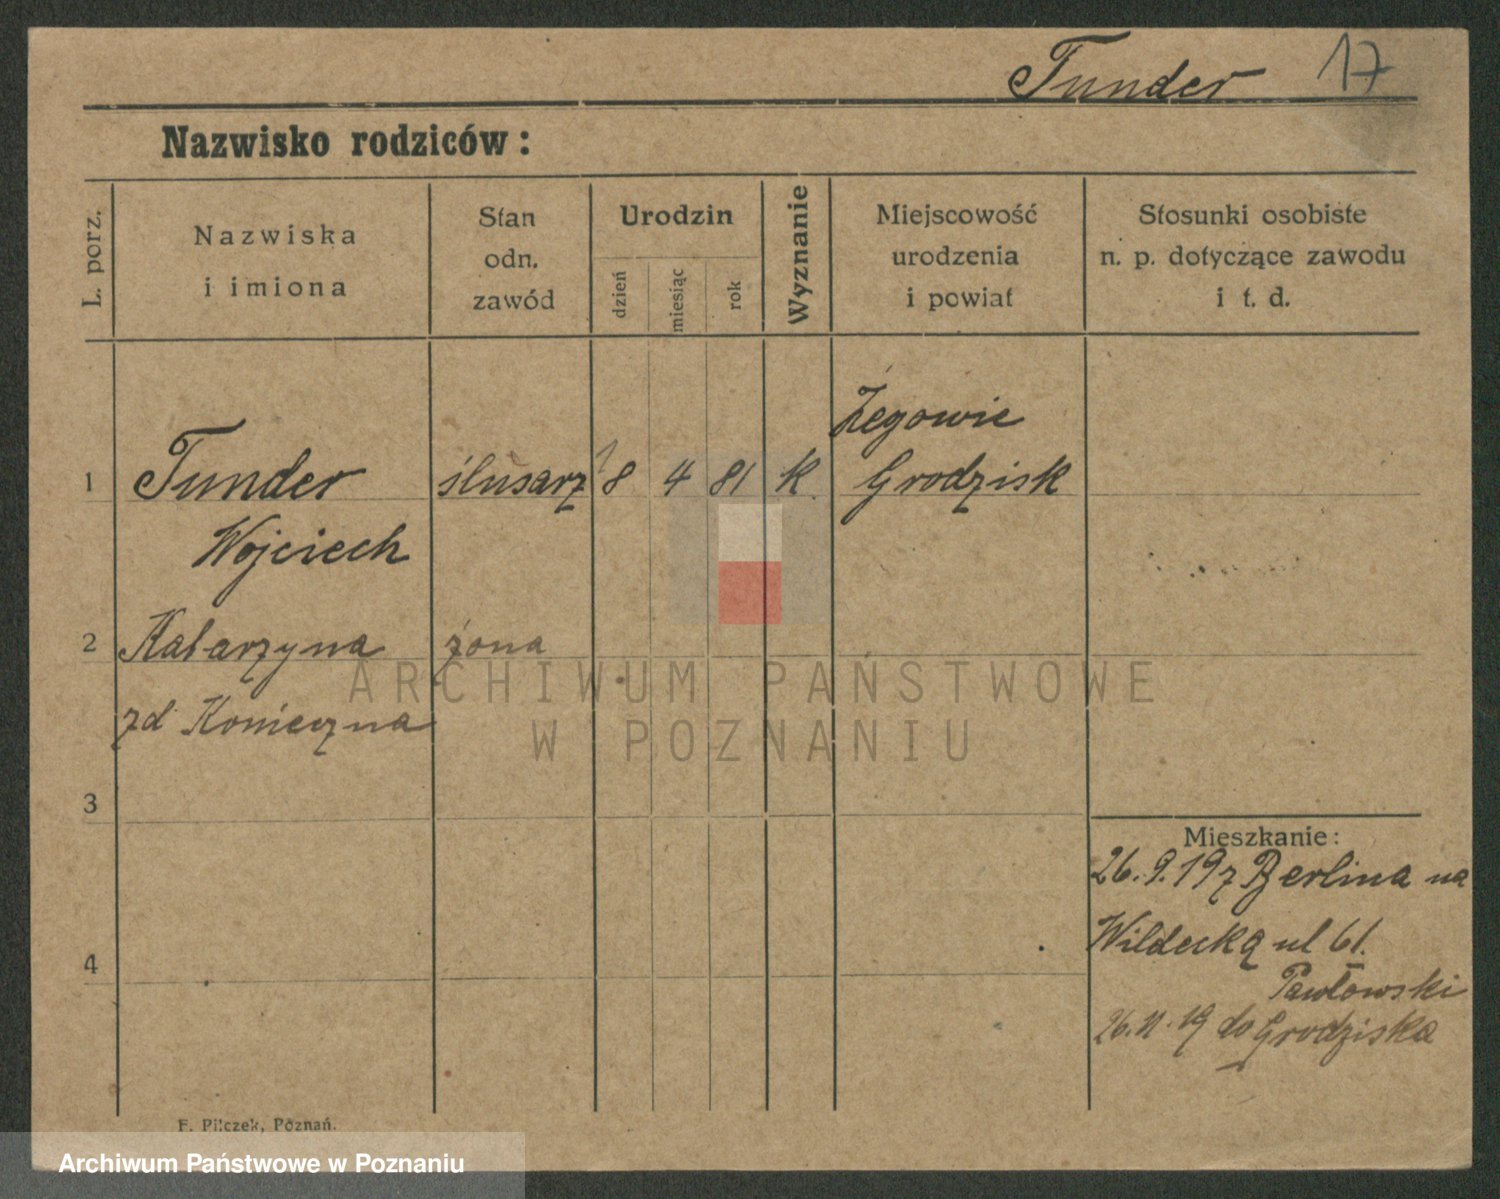 Tunder 17
Nazwisko rodziców:
L. porz.
Nazwiska
i imiona
Stan
odn.
zawód
Urodzin
dzień
miesiąc
rok
Wyznanie
Miejscowość
urodzenia
i powiat
Stosunki osobiste
n. p. dotyczące zawodu
i t. d.
Żegowie
1 Tunder ślusarz 8 4 81 k. Grodzisk
Wojciech
2 Katarzyna żona
zd Konieczna
ARCHIWUM PAŃSTWOWE
W POZNANIU
3
Mieszkanie:
26.9.19 z Berlina na
Wildecką ul 61.
4
Pawłowski
26.11.19 do Grodziska
F. Pilczek, Poznań.
Archiwum Państwowe w Poznaniu